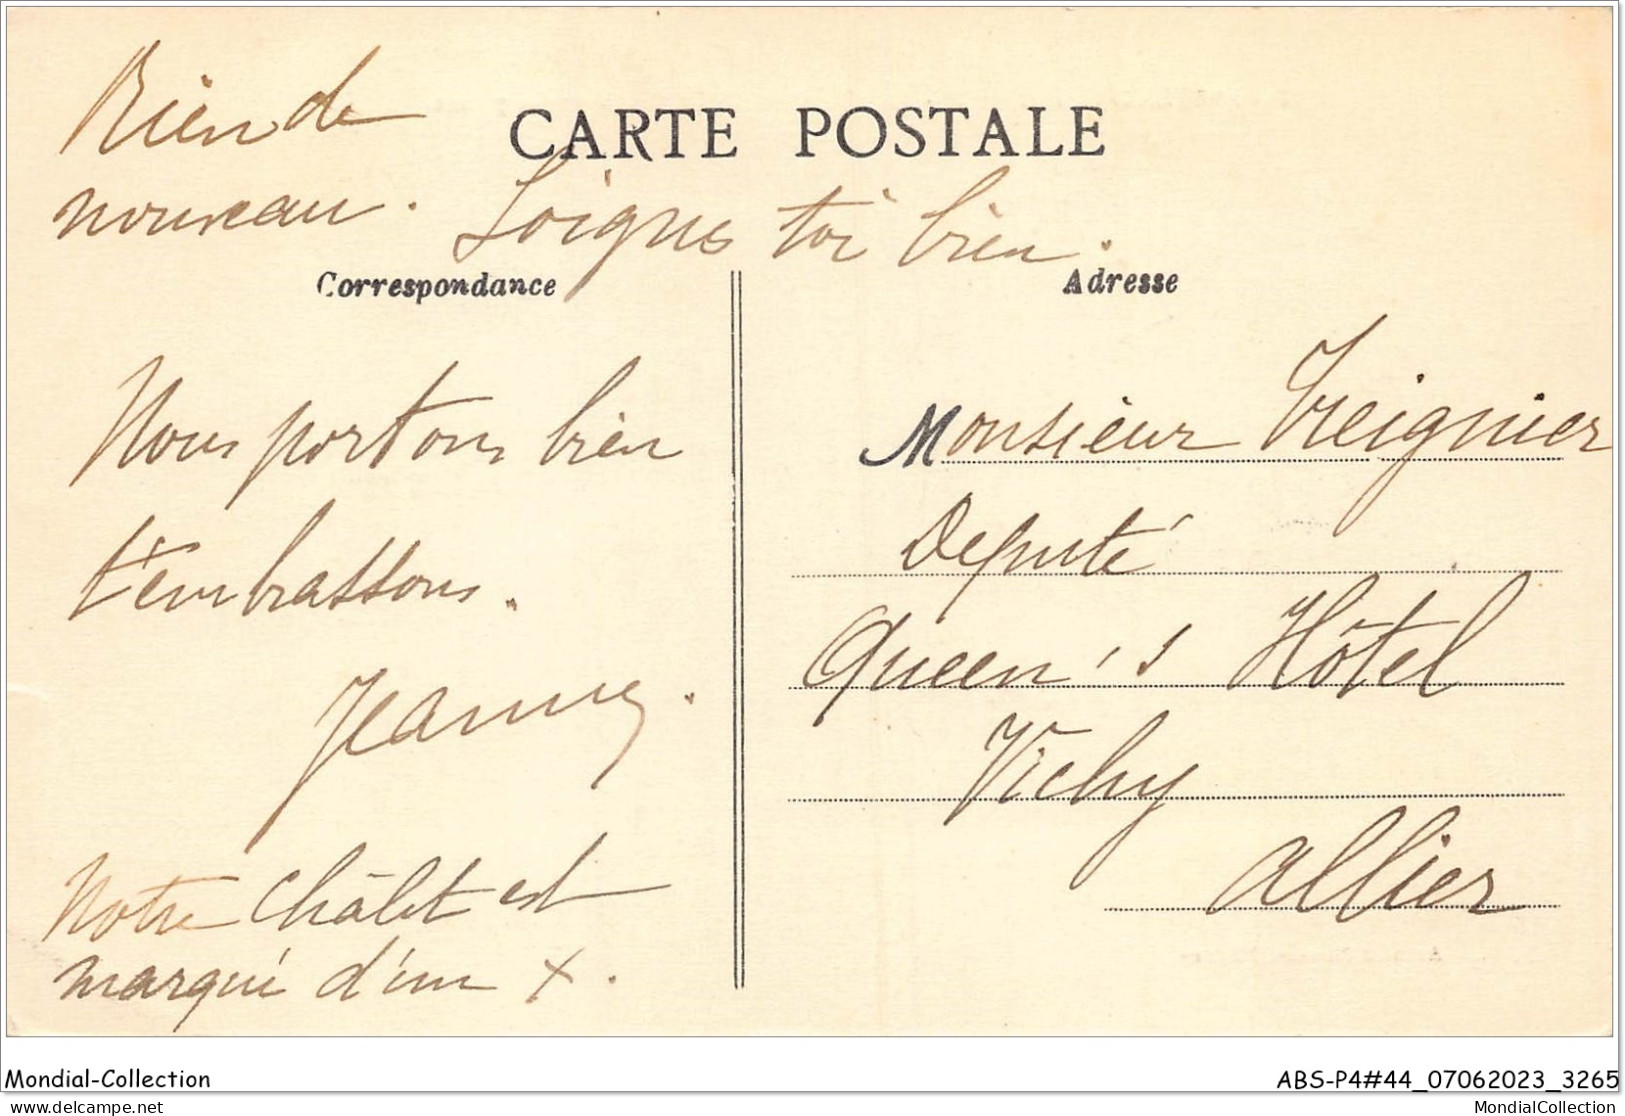 Rien de
CARTE POSTALE
nouveau. Soigne toi bien.
Correspondance
Adresse
Nous portons bien
t'embrassons.
Jeanne.
Notre châlet est
marqué d'un X.
Monsieur Treignier
Député
Queen's Hôtel
Vichy
Allier
Mondial-Collection
ABS-P4#44_07062023_3265
delcampe.net
MondialCollection